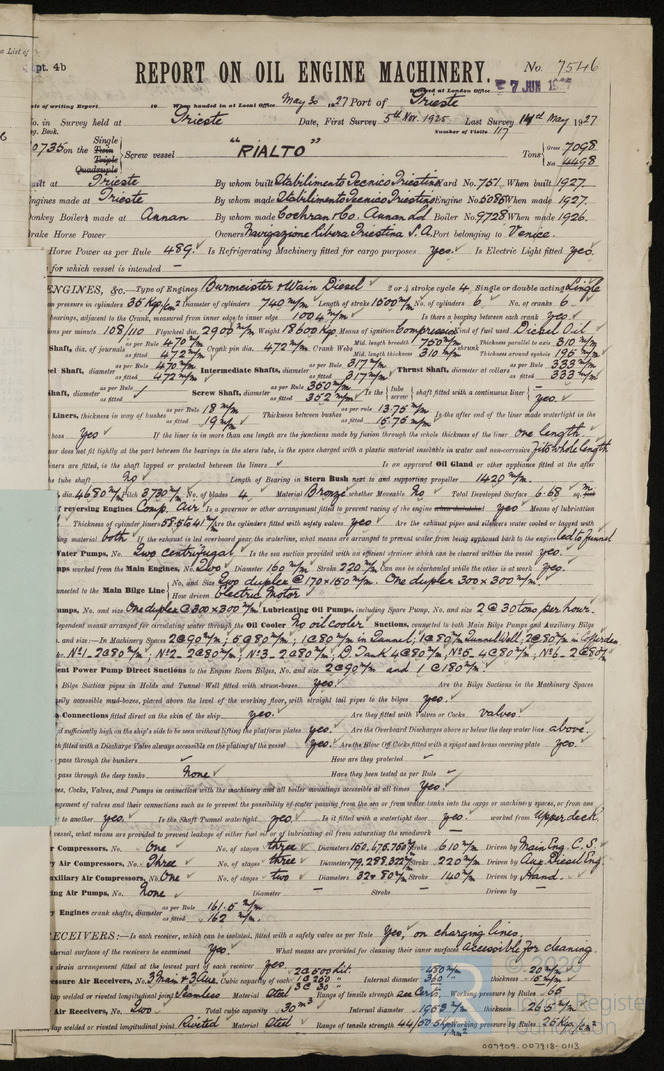 a List of
pt. 4b
REPORT ON OIL ENGINE MACHINERY.
No. 7546
Received at London Office 7 JUN 1927
Date of writing Report 19 When handed in at Local Office May 30 1927 Port of Trieste
No. in Survey held at Trieste Date, First Survey 5th Nov. 1925 Last Survey May 1927
Reg. Book. Number of Visits 117
0735 on the Single Twin Triple Quadruple Screw vessel "RIALTO" Tons Gross 7098 Net 4498
Built at Trieste By whom built Stabilimento Tecnico Triestino Yard No. 751 When built 1927
Engines made at Trieste By whom made Stabilimento Tecnico Triestino Engine No. 5086 When made 1927
Donkey Boilers made at Annan By whom made Cochran & Co. Annan Ltd Boiler No. 9728 When made 1926
Brake Horse Power Owners Navigazione Libera Triestina S.A. Port belonging to Venice.
Horse Power as per Rule 489. Is Refrigerating Machinery fitted for cargo purposes yes. Is Electric Light fitted yes.
for which vessel is intended —
ENGINES, &c. Type of Engines Burmeister & Wain Diesel 2 or 4 stroke cycle 4. Single or double acting Single
pressure in cylinders 35 Kg/cm2 Diameter of cylinders 740 m/m Length of stroke 1500 m/m No. of cylinders 6 No. of cranks 6
bearings, adjacent to the Crank, measured from inner edge to inner edge 1004 m/m Is there a bearing between each crank yes.
ions per minute 108/110 Flywheel dia. 2900 m/m Weight 18600 Kg Means of ignition Compression Kind of fuel used Diesel Oil
Shaft, dia. of journals as per Rule 470 m/m as fitted 472 m/m Crank pin dia. 472 m/m Crank Webs Mid. length breadth 750 m/m Mid. length thickness 310 m/m shrunk Thickness parallel to axis 310 m/m Thickness around eyehole 195 m/m
Shaft, diameter as per Rule 470 m/m as fitted 472 m/m Intermediate Shafts, diameter as per Rule 317 m/m as fitted 317 m/m Thrust Shaft, diameter at collars as per Rule 333 m/m as fitted 333 m/m
Shaft, diameter as per Rule as fitted Screw Shaft, diameter as per Rule 350 m/m as fitted 352 m/m Is the tube screw shaft fitted with a continuous liner yes.
Liners, thickness in way of bushes as per Rule 18 m/m as fitted 19 m/m Thickness between bushes as per rule 13.75 m/m as fitted 15.75 m/m Is the after end of the liner made watertight in the
boss yes If the liner is in more than one length are the junctions made by fusion through the whole thickness of the liner one length.
does not fit tightly at the part between the bearings in the stern tube, is the space charged with a plastic material insoluble in water and non-corrosive fits whole length
liners are fitted, is the shaft lapped or protected between the liners Is an approved Oil Gland or other appliance fitted at the after
tube shaft No Length of Bearing in Stern Bush next to and supporting propeller 1420 m/m.
dia. 4680 m/m Pitch 3730 m/m No. of blades 4. Material Bronze whether Moveable No Total Developed Surface 6.68 sq. m
reversing Engines Comp. Air Is a governor or other arrangement fitted to prevent racing of the engine yes Means of lubrication
Thickness of cylinder liners Are the cylinders fitted with safety valves yes Are the exhaust pipes and silencers water cooled or lagged with
material both If the exhaust is led overboard near the waterline, what means are arranged to prevent water from being syphoned back to the engine led to funnel
Water Pumps, No. Two centrifugal Is the sea suction provided with an efficient strainer which can be cleared within the vessel yes.
worked from the Main Engines, No. Two Diameter 160 m/m Stroke 220 m/m Can one be overhauled while the other is at work yes.
connected to the Main Bilge Line No. and Size Two duplex @ 170 x 150 m/m. One duplex 300 x 300 m/m.
How driven Electric Motor
Pumps, No. and size One duplex @ 300 x 300 m/m Lubricating Oil Pumps, including Spare Pump, No. and size 2 @ 30 tons per hour.
independent means arranged for circulating water through the Oil Cooler No oil cooler Suctions, connected to both Main Bilge Pumps and Auxiliary Bilge
and size:—In Machinery Spaces 2 @ 90 m/m; 5 @ 80 m/m; 1 @ 80 m/m in Tunnel; 1 @ 80 m/m Tunnel Well; 2 @ 80 m/m in Cofferdam
No 1 – 2 @ 80 m/m; No 2 – 2 @ 80 m/m; No 3 – 2 @ 80 m/m; D. Tank 4 @ 80 m/m; No 5 – 4 @ 80 m/m; No 6 – 2 @ 80 m/m
Power Pump Direct Suctions to the Engine Room Bilges, No. and size 2 @ 90 m/m and 1 @ 180 m/m
Bilge Suction pipes in Holds and Tunnel Well fitted with strum-boxes yes. Are the Bilge Suctions in the Machinery Spaces
easily accessible mud-boxes, placed above the level of the working floor, with straight tail pipes to the bilges yes.
Connections fitted direct on the skin of the ship yes. Are they fitted with Valves or Cocks valves.
sufficiently high on the ship's side to be seen without lifting the platform plates yes. Are the Overboard Discharges above or below the deep water line above.
fitted with a Discharge Valve always accessible on the plating of the vessel yes. Are the Blow Off Cocks fitted with a spigot and brass covering plate yes.
pass through the bunkers — How are they protected —
pass through the deep tanks None Have they been tested as per Rule —
Cocks, Valves, and Pumps in connection with the machinery and all boiler mountings accessible at all times yes.
arrangement of valves and their connections such as to prevent the possibility of water passing from the sea or from water tanks into the cargo or machinery spaces, or from one
to another yes. Is the Shaft Tunnel watertight yes. Is it fitted with a watertight door yes. worked from Upper deck.
vessel, what means are provided to prevent leakage of either fuel oil or of lubricating oil from saturating the woodwork —
Compressors, No. One No. of stages three Diameters Stroke 610 m/m Driven by Main Eng. C.S.
Air Compressors, No. Three No. of stages three Diameters Stroke 220 m/m Driven by Aux. Diesel Eng.
Auxiliary Air Compressors, No. One No. of stages two Diameters Stroke 140 m/m Driven by Hand.
Air Pumps, No. None Diameter — Stroke — Driven by —
Engines crank shafts, diameter as per Rule 161.5 m/m as fitted 162 m/m.
RECEIVERS:—Is each receiver, which can be isolated, fitted with a safety valve as per Rule Yes, on charging lines.
internal surfaces of the receivers be examined yes. What means are provided for cleaning their inner surfaces accessible for cleaning.
drain arrangement fitted at the lowest part of each receiver yes.
Air Receivers, No. 3 Main & 3 Aux. Cubic capacity of each Internal diameter thickness
lap welded or riveted longitudinal joint Seamless Material Steel Range of tensile strength see certs. Working pressure by Rules 66
Air Receivers, No. Two Total cubic capacity 30 m3 Internal diameter 1953 m/m thickness 26.5 m/m
lap welded or riveted longitudinal joint Riveted Material Steel Range of tensile strength 44/50.5 Working pressure by Rules 25 Kgs/cm2
© 2020
Lloyd's Register
Foundation
007909-007918-0113